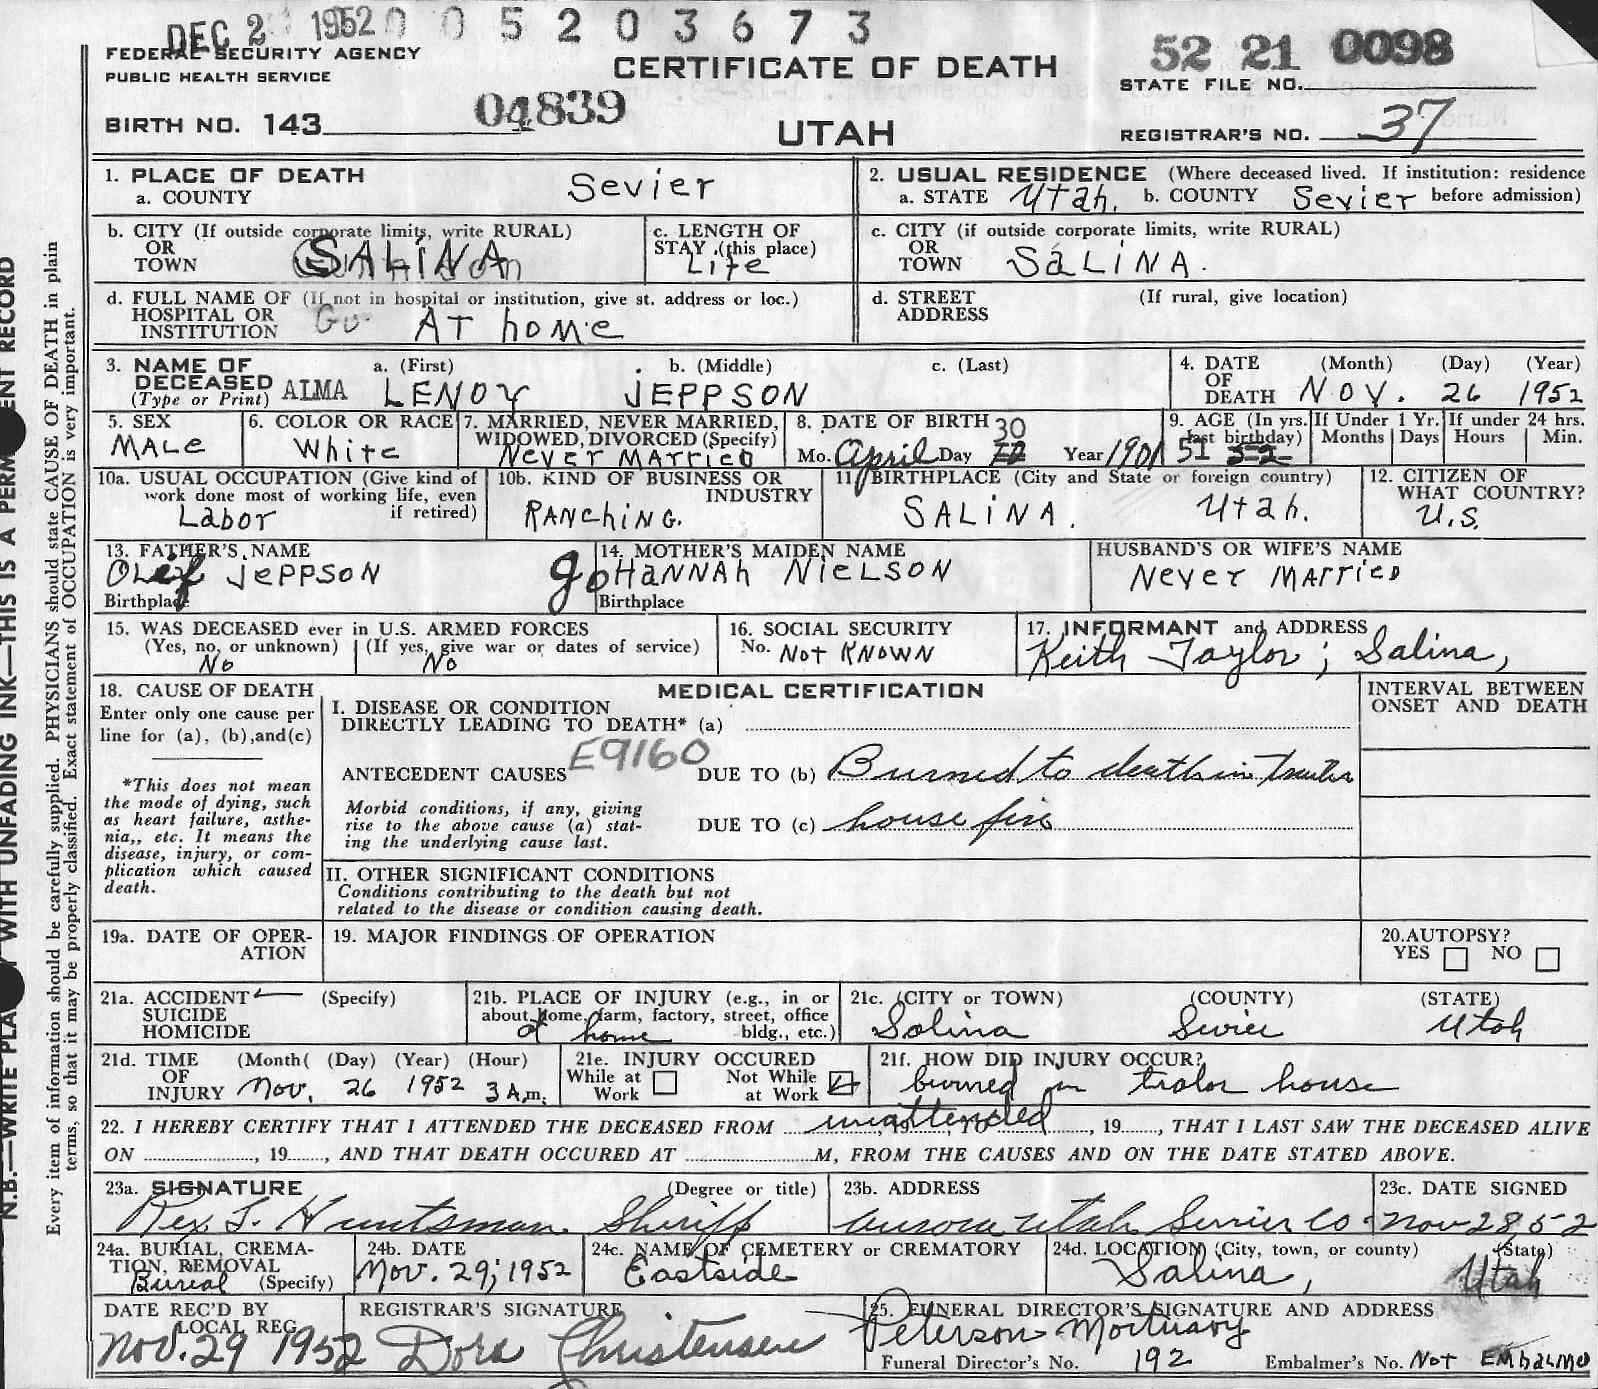 DEC 2 1952 0 0 5 2 0 3 6 7 3
FEDERAL SECURITY AGENCY
PUBLIC HEALTH SERVICE
CERTIFICATE OF DEATH
52 21 0098
STATE FILE NO.
BIRTH NO. 143 04839
UTAH
REGISTRAR'S NO. 37
1. PLACE OF DEATH
a. COUNTY Sevier
2. USUAL RESIDENCE (Where deceased lived. If institution: residence before admission)
a. STATE Utah. b. COUNTY Sevier
b. CITY (If outside corporate limits, write RURAL)
OR
TOWN SALINA
c. LENGTH OF
STAY (this place)
Life
c. CITY (if outside corporate limits, write RURAL)
OR
TOWN SALINA.
d. FULL NAME OF (If not in hospital or institution, give st. address or loc.)
HOSPITAL OR
INSTITUTION AT home
d. STREET (If rural, give location)
ADDRESS
3. NAME OF a. (First) b. (Middle) c. (Last)
DECEASED
(Type or Print) ALMA LENOY JEPPSON
4. DATE (Month) (Day) (Year)
OF
DEATH NOV. 26 1952
5. SEX
MALe
6. COLOR OR RACE
White
7. MARRIED, NEVER MARRIED,
WIDOWED, DIVORCED (Specify)
Never MARRIED
8. DATE OF BIRTH 30
Mo. April Day Year 1901
9. AGE (In yrs. last birthday) 51 52
If Under 1 Yr. Months Days
If under 24 hrs. Hours Min.
10a. USUAL OCCUPATION (Give kind of
work done most of working life, even
if retired)
Labor
10b. KIND OF BUSINESS OR
INDUSTRY
RANCHING.
11. BIRTHPLACE (City and State or foreign country)
SALINA. Utah.
12. CITIZEN OF
WHAT COUNTRY?
U.S.
13. FATHER'S NAME
Olef JePPSON
Birthplace
14. MOTHER'S MAIDEN NAME
JoHANNAh NIELSON
Birthplace
HUSBAND'S OR WIFE'S NAME
Never MARRIED
15. WAS DECEASED ever in U.S. ARMED FORCES
(Yes, no, or unknown) (If yes, give war or dates of service)
No No
16. SOCIAL SECURITY
No. Not KNOWN
17. INFORMANT and ADDRESS
Keith Taylor; Salina,
18. CAUSE OF DEATH
Enter only one cause per
line for (a), (b), and(c)
*This does not mean
the mode of dying, such
as heart failure, asthe-
nia,, etc. It means the
disease, injury, or com-
plication which caused
death.
MEDICAL CERTIFICATION
INTERVAL BETWEEN
ONSET AND DEATH
I. DISEASE OR CONDITION
DIRECTLY LEADING TO DEATH* (a)
E9160
ANTECEDENT CAUSES DUE TO (b) Burned to death in Trailer
Morbid conditions, if any, giving
rise to the above cause (a) stat-
ing the underlying cause last.
DUE TO (c) house fire
II. OTHER SIGNIFICANT CONDITIONS
Conditions contributing to the death but not
related to the disease or condition causing death.
19a. DATE OF OPER-
ATION
19. MAJOR FINDINGS OF OPERATION
20. AUTOPSY?
YES NO
21a. ACCIDENT (Specify)
SUICIDE
HOMICIDE
21b. PLACE OF INJURY (e.g., in or
about home, farm, factory, street, office
bldg., etc.)
at home
21c. (CITY or TOWN) (COUNTY) (STATE)
Salina Sevier Utah
21d. TIME (Month( (Day) (Year) (Hour)
OF
INJURY Nov. 26 1952 3 A.m.
21e. INJURY OCCURED
While at Work Not While at Work
21f. HOW DID INJURY OCCUR?
burned in tralor house
22. I HEREBY CERTIFY THAT I ATTENDED THE DECEASED FROM unattended, 19......, THAT I LAST SAW THE DECEASED ALIVE
ON ............, 19......, AND THAT DEATH OCCURED AT ............M, FROM THE CAUSES AND ON THE DATE STATED ABOVE.
23a. SIGNATURE (Degree or title)
Rex S. Huntsman Sheriff
23b. ADDRESS
Aurora Utah Sevier Co.
23c. DATE SIGNED
Nov 28, 52
24a. BURIAL, CREMA-
TION, REMOVAL
Burial (Specify)
24b. DATE
Nov. 29, 1952
24c. NAME OF CEMETERY or CREMATORY
Eastside
24d. LOCATION (City, town, or county) (State)
Salina, Utah
DATE REC'D BY
LOCAL REG.
Nov. 29 1952
REGISTRAR'S SIGNATURE
Dora Christensen
25. FUNERAL DIRECTOR'S SIGNATURE AND ADDRESS
Peterson Mortuary
Funeral Director's No. 192 Embalmer's No. Not EMbalmed
N.B.—WRITE PLAINLY WITH UNFADING INK—THIS IS A PERMANENT RECORD
Every item of information should be carefully supplied. PHYSICIANS should state CAUSE OF DEATH in plain
terms, so that it may be properly classified. Exact statement of OCCUPATION is very important.